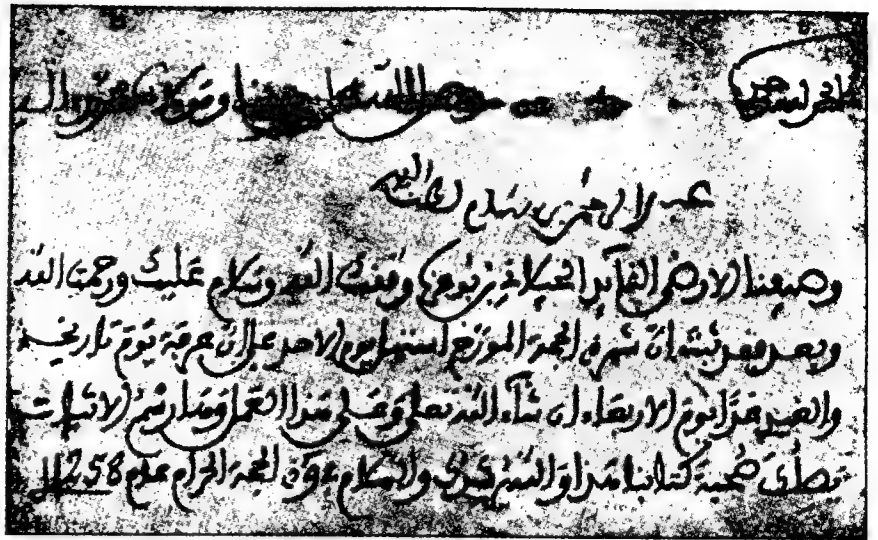 الحمد لله وحده وصلى الله على سيدنا ومولانا محمد وآله
عبد الرحمن بن هشام الله إليه
وصيفنا الارضى القايد الجيلاني بن بوعزى وفقك الله وسلام عليك ورحمت الله
وبعد فقد ثبت ان شهر ذي الحجة المورخ استهل يوم الاحد على ان عرفة يوم تاريخه
والعيد غدا يوم الاربعاء ان شاء الله تعلى وعلى هذا العمل وهذا رسم الاثبات
يصلك صحبة كتابنا هذا والله يتولاك والسلام في ذي الحجة الحرام عام 1258